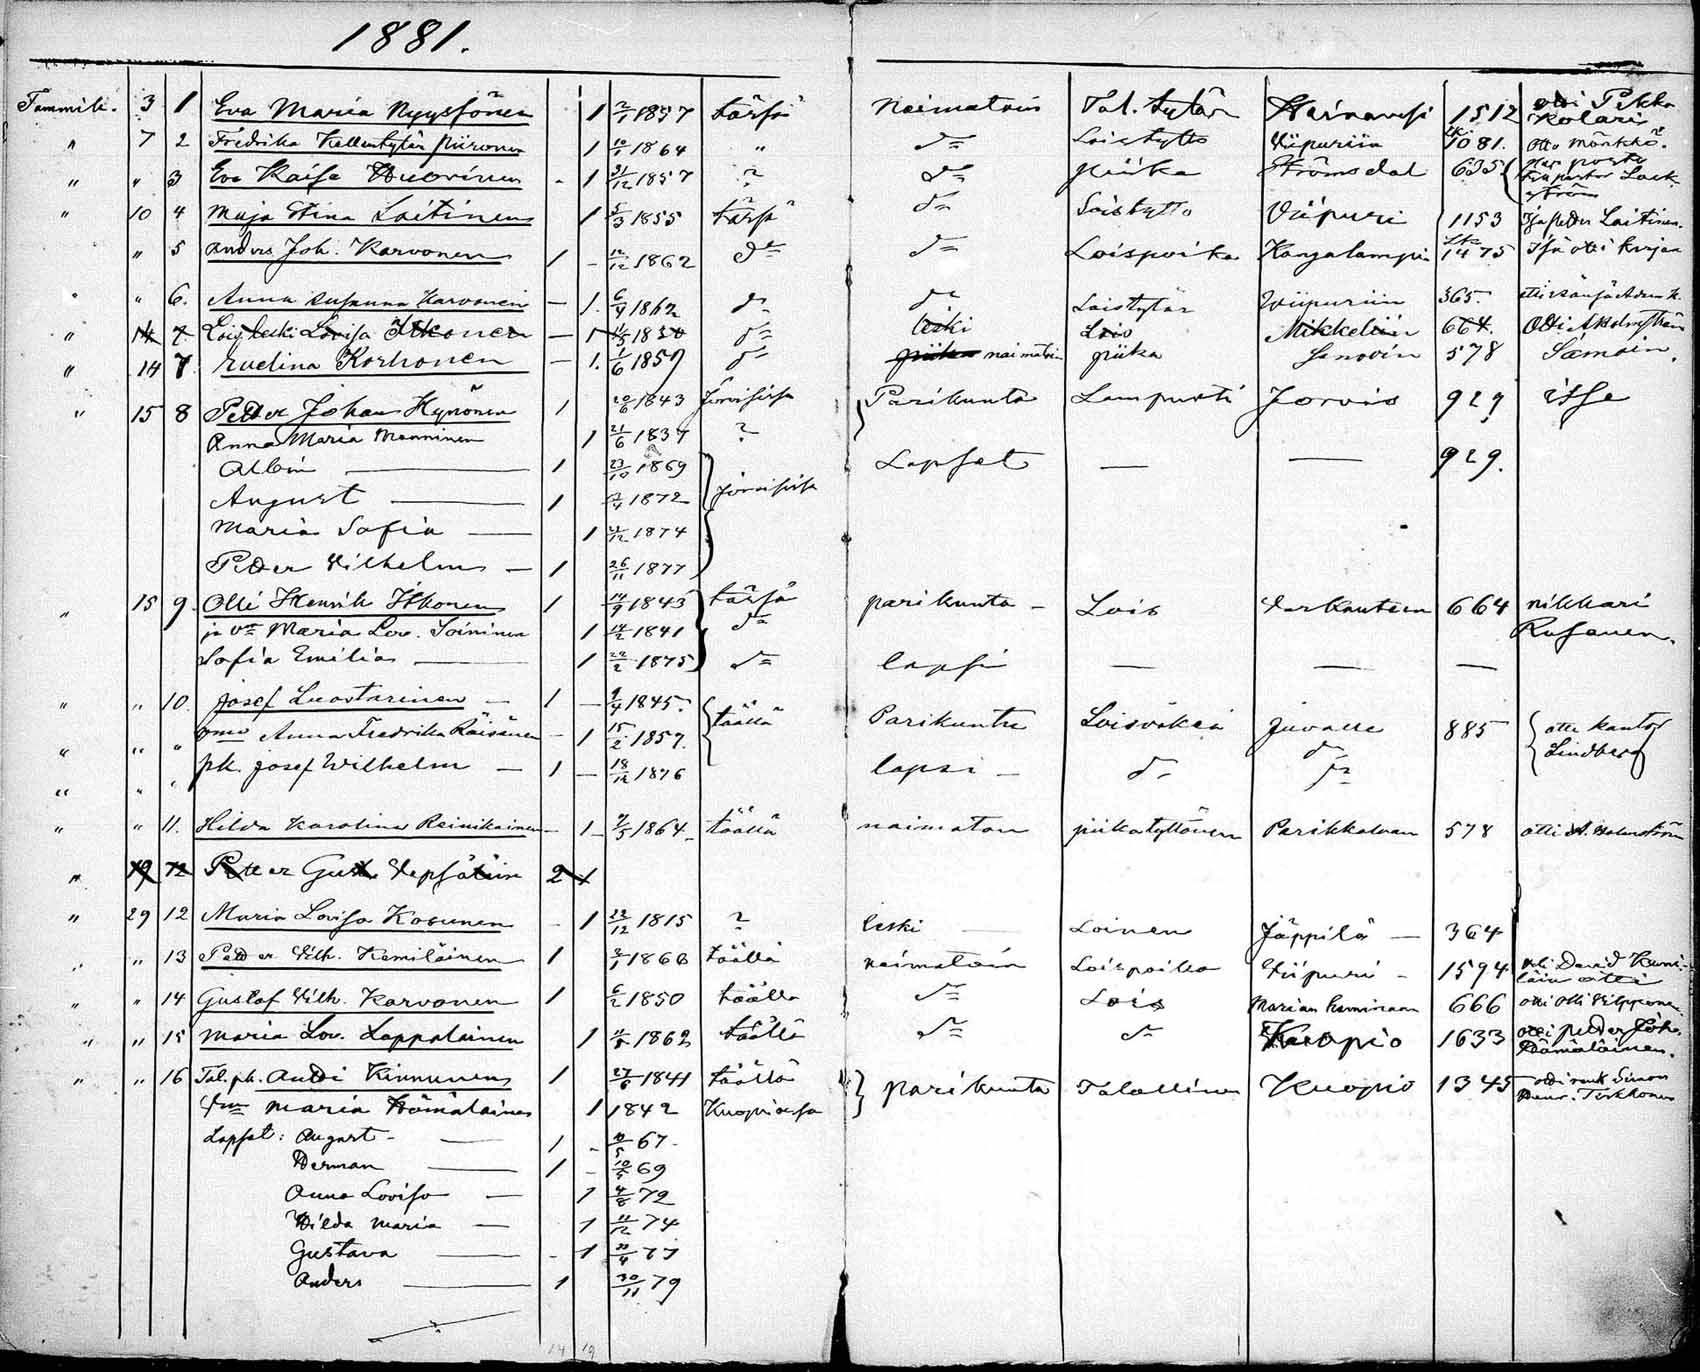 1881.
Tammik. 3 1 Eva Maria Nyyssönen 1 1857 tässä Naimatoin Tal. tytär Heinävesi 1512 otti Pekka Kolari
" 7 2 Fredrika Kellentytär Piironen 1 10/1 1864 " do Loistyttö Viipuriin 1081. Otto Mönkkö.
" " 3 Eva Kaisa Huovinen - 1 31/12 1857 ? do Piika Strömsdal 635
" 10 4 Maja Stina Laitinen 1 5/3 1855 tässä do Loistyttö Viipuri 1153 Isä Petter Laitinen.
" " 5 Anders Joh. Karvonen 1 - 12/12 1862 do do Loispoika Kangaslampi 1475 Isä otti kirjan
" " 6. Anna Susanna Karvonen - 1. 6/4 1862 do do Loistytär Wiipuriin 365.
" 14 7. Lois leski Lovisa Itkonen - 1 do leski Lois Mikkeliin 664. Otti A Holmström
" 14 7 Evelina Korhonen - 1. 1/6 1859 do piika naimatoin piika 578
" 15 8 Petter Johan Hynönen 1 20/6 1843 Joroisissa Parikunta Lampuoti Jorois 929 itse
Anna Maria Manninen 1 21/6 1837 ?
Albin 1 23/10 1869 Lapset — — 929.
August 1 1872 Joroisissa
Maria Sofia 1 1874
Petter Vilhelm - 1 26/11 1877
" 15 9. Olli Henrik Itkonen 1 14/9 1843 tässä parikunta - Lois Varkauteen 664 nikkari Rusanen.
ja vmo Maria Lov. Soininen 1 14/2 1841 do
Sofia Emilia 1 22/2 1875 do lapsi — — —
" " 10. Josef Luostarinen - 1 - 9/4 1845. täällä Parikunta Loisväkiä Juvalle 885 otti kantor Lindberg
" " " vmo Anna Fredrika Räisänen - 1 15/2 1857. do
" " " pk. Josef Wilhelm - 1 - 18/12 1876 lapsi - do do
" " 11. Hilda Karolina Reinikainen - 1 - 9/5 1864 - täällä naimaton piikatyttönen Parikkalaan 578 otti A. Holmström
" 19 12 Petter Gust. Vepsäläin 2 1
" 29 12 Maria Lovisa Kosunen - 1 22/12 1815 ? leski Loinen Jäppilä - 364
" " 13 Petter Vilh. Kemiläinen 1 1866 täällä naimatoin Loispoika Viipuri - 1594 veli David Kemiläin otti
" " 14 Gustaf Vilh. Karvonen 1 6/2 1850 täällä do Lois 666 otti Olli Vilpponen.
" " 15 Maria Lov. Lappalainen 1 1862 täällä do do Kuopio 1633 otti Petter Joh. Hämäläinen.
" " 16 Tal. pk. Antti Kinnunen 1 27/6 1841 täällä parikunta Talollinen Kuopio 1345
Vmo Maria Hämäläinen 1 1842 Kuopiossa
Lapset: August - 1 - 67
Herman 1 - 69
Anna Lovisa - 1 4/8 72
Hilda Maria - 1 11/12 74
Gustava - 1 77
Anders 1 30/11 79
14 19